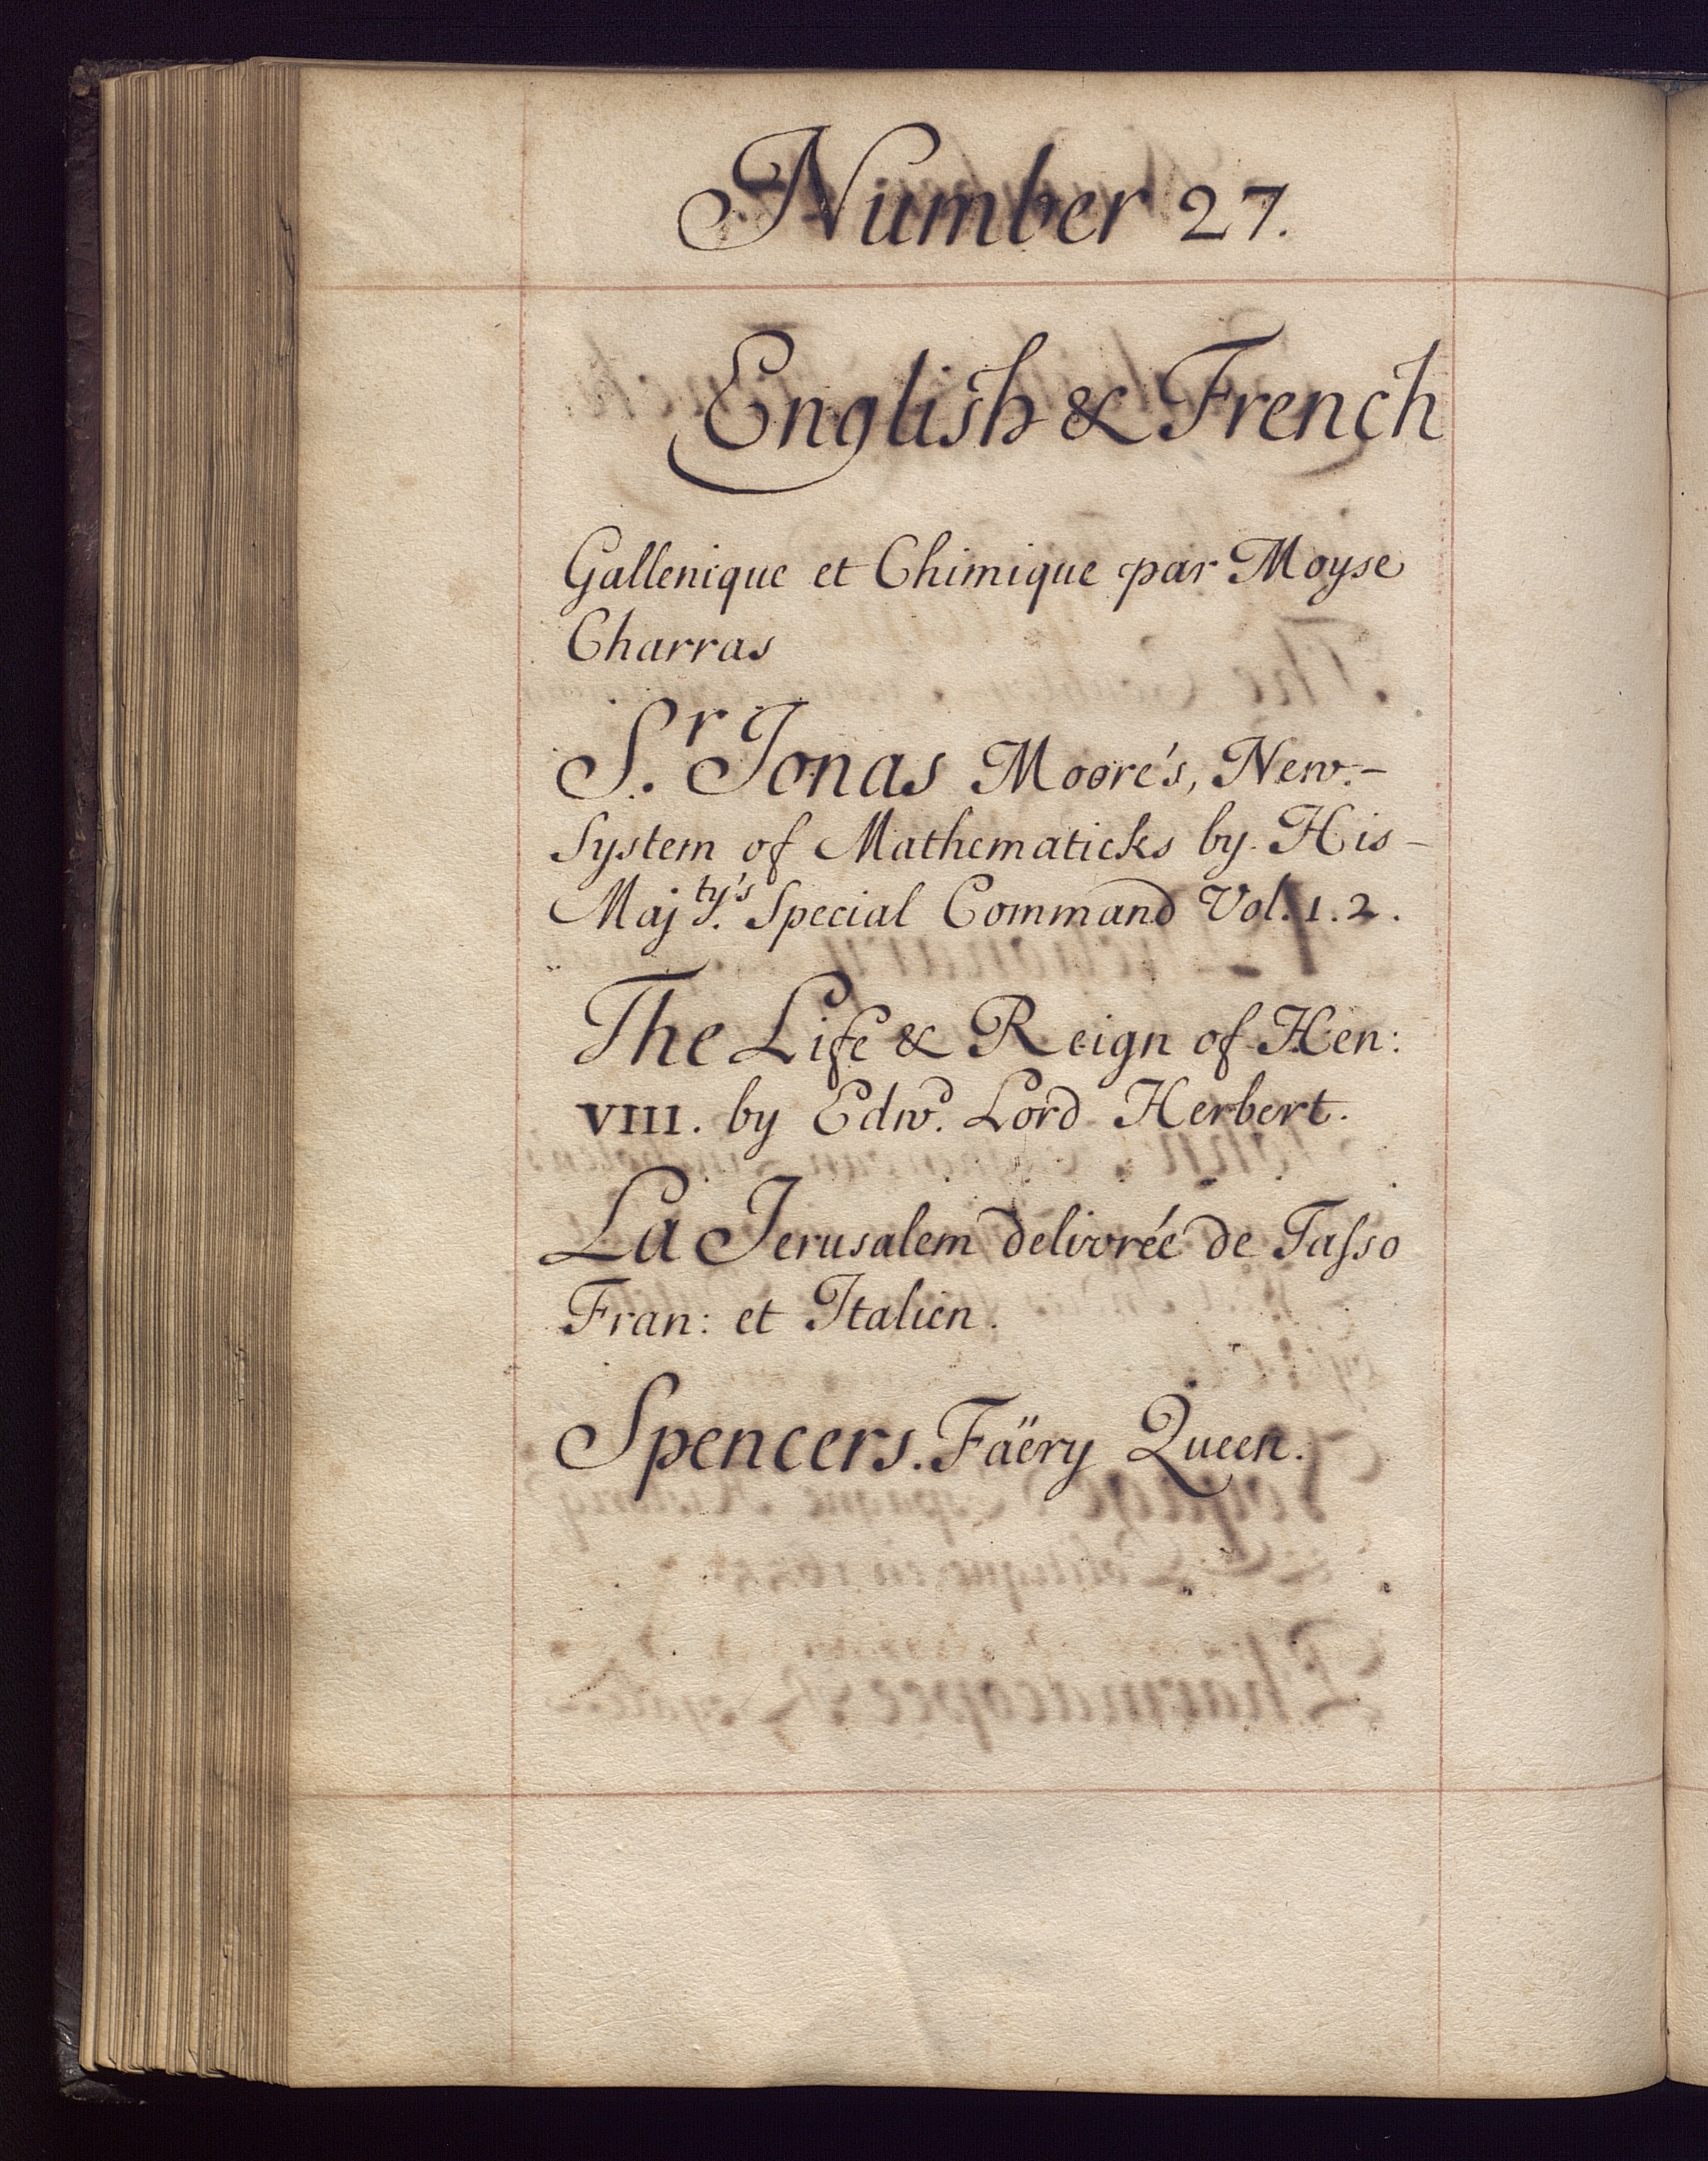 Number 27.
English & French
Gallenique et Chimique par Moyse
Charras
Sr. Jonas Moore's, New.-
System of Mathematicks by. His -
Majty's. Special Command Vol. 1. 2.
The Life & Reign of Hen:
VIII. by Edwd. Lord Herbert.
La Jerusalem delivrée de Taſso
Fran: et Italien.
Spencers. Fäery Queen.